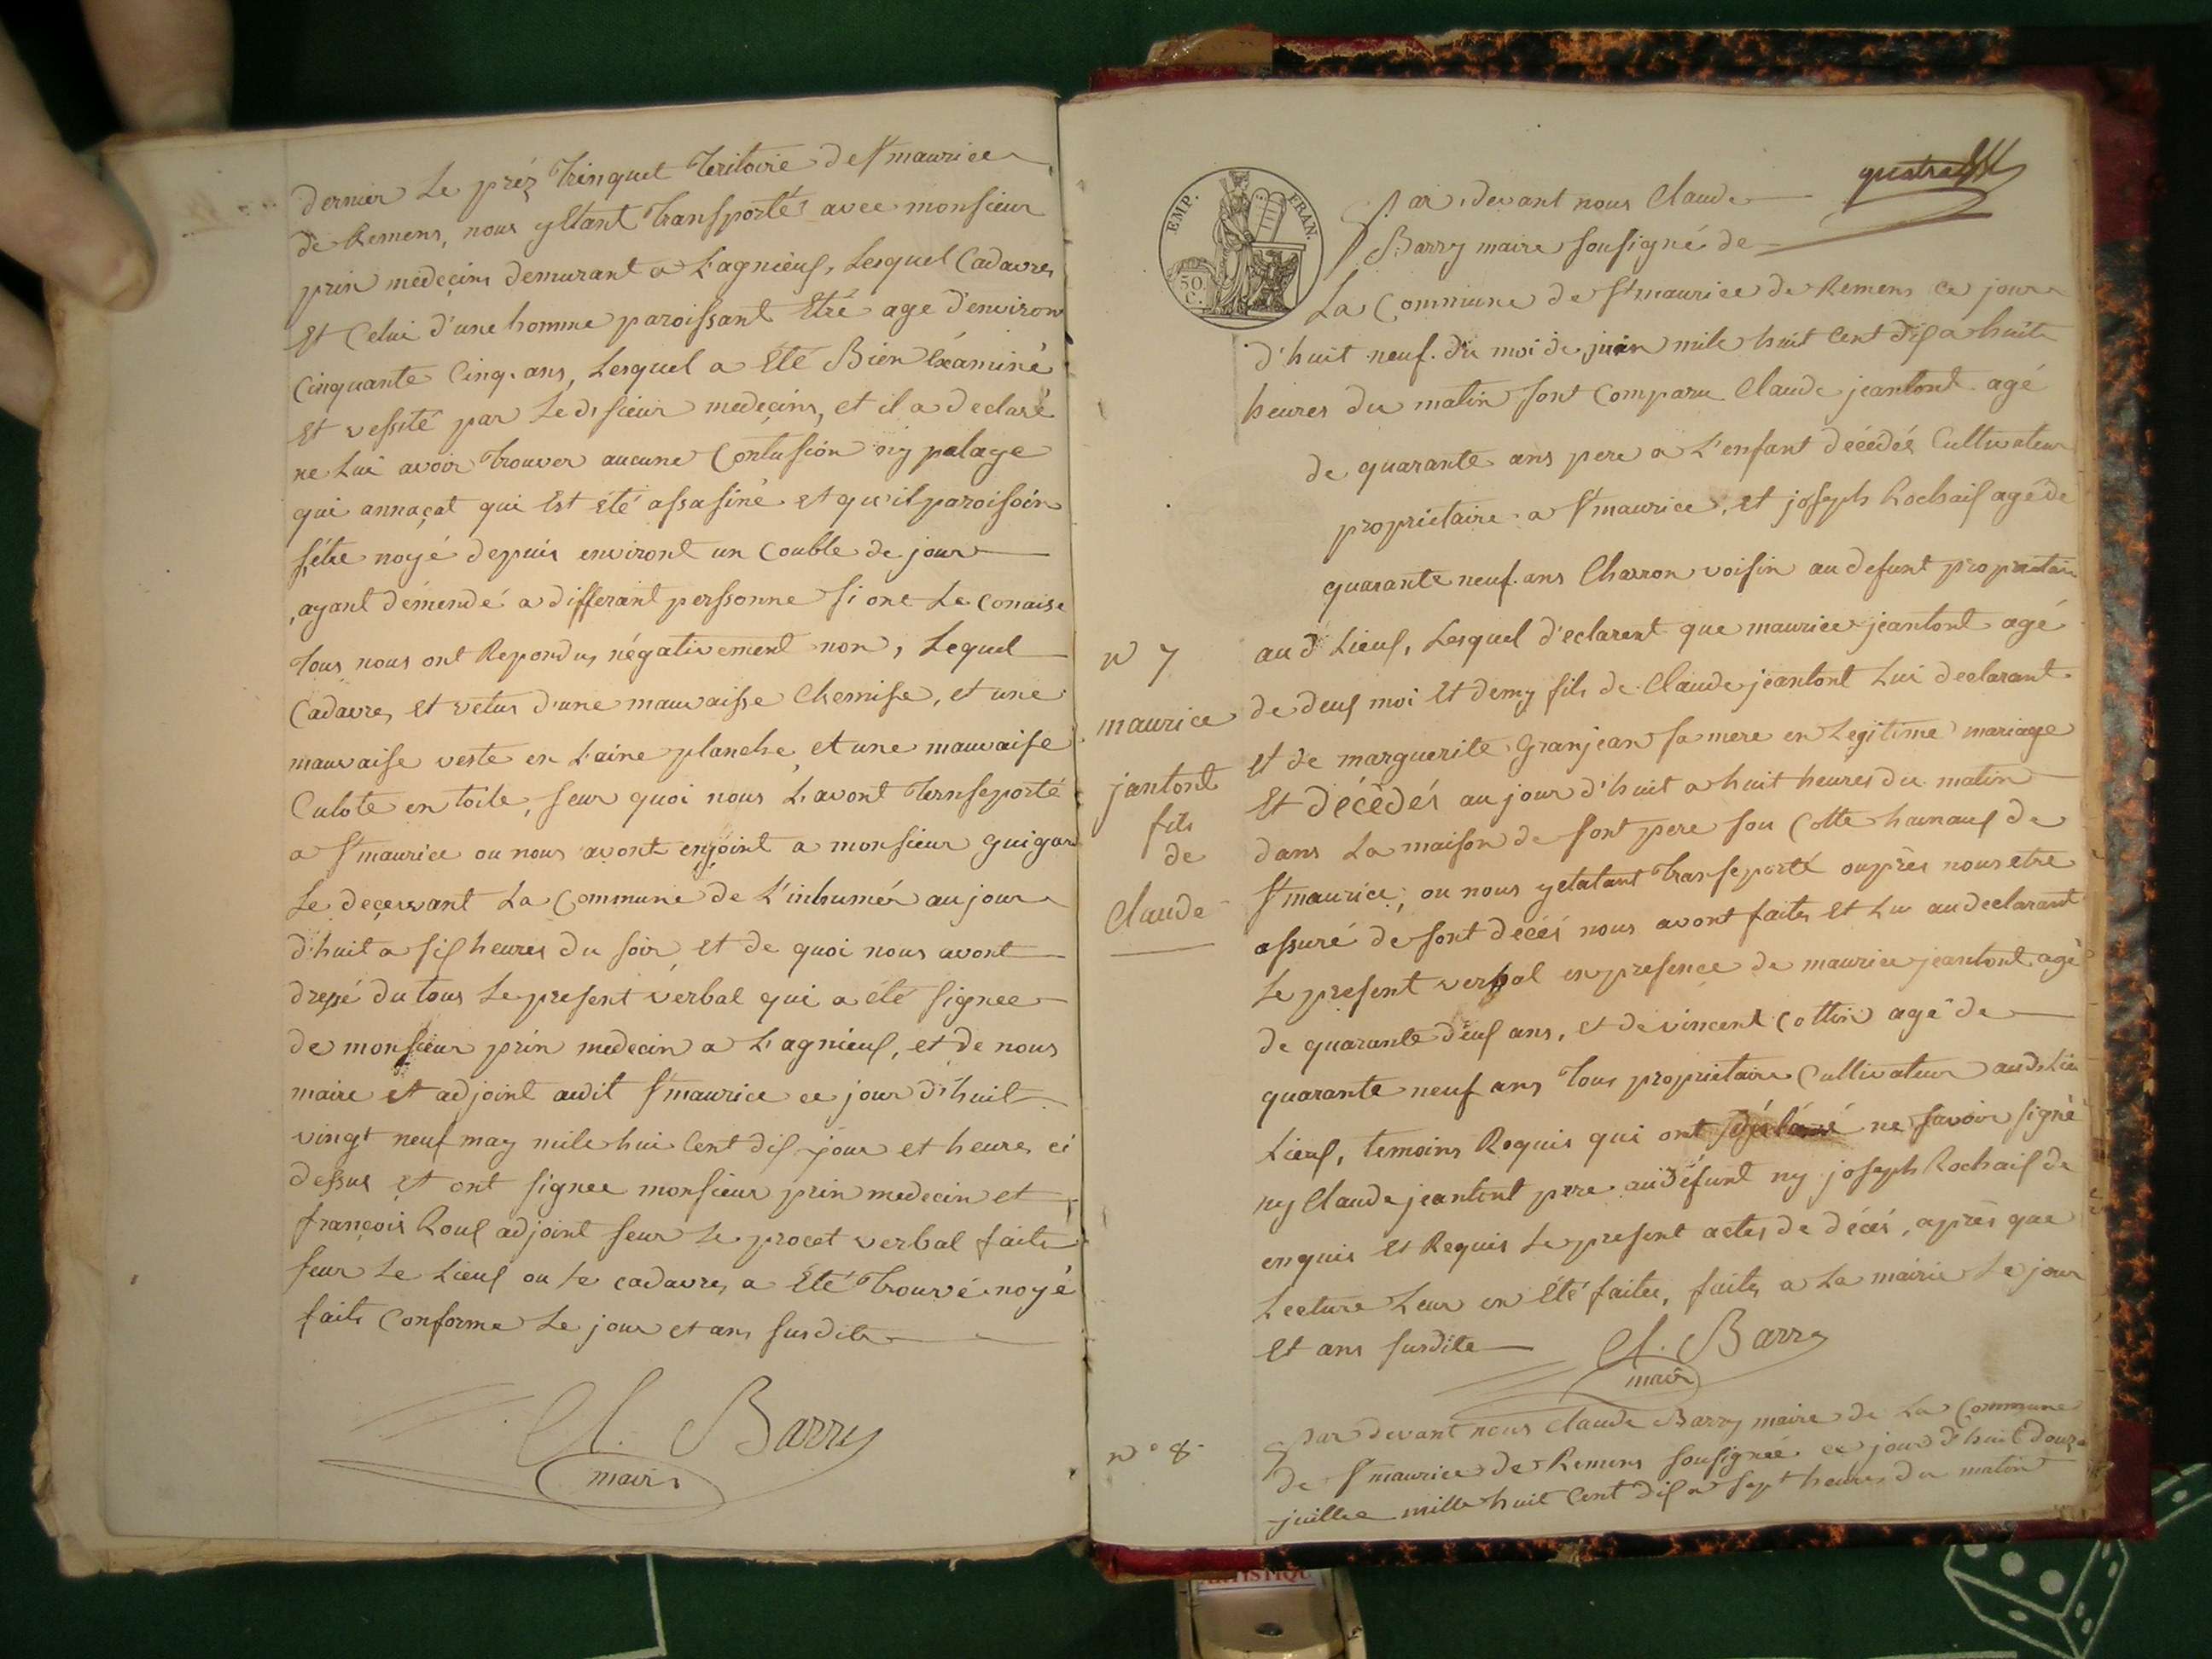 dernier Le préz Trinquet Teritoire de St maurice
de Remens, nous y Etant Transporté avec monsieur
prin médeçins demurant a L'agnieux, Lesquel Cadavres
Et Celui d'une homme paroissant Etre age d'environ
Cinquante Cinq. ans, Lesquel a Eté Bien Examiné
Et vessité par Le dt sieur medeçins, et il a declaré
ne Lui avoir Trouver aucune Contusion ny
qui qui Est été assasiné et qu'il paroissoin
s'étre noyé depuis environt un Couble de jour
ayant démendé a differant perssonne si one Le Conaise
Tous nous ont Repondus négativement non, Lequel
Cadavres et vetus d'une mauvaisse Chemise, et une
mauvaise veste en Laine planche, et une mauvaise
Culote en toile, seur quoi nous L'avont Ternseporté
a St maurice ou nous avont enjoint a monsieur guigar
Le deçervant La Commune de L'inhumér au jour
d'huit a six heures du soir, et de quoi nous avont
dressé du tous Le present verbal qui a eté signee
de monsieur prin medecin a L'agnieux, et de nous
maire et adjoint audit St maurice ce jour d'huit
vingt neuf may mile hui Cent dix jour et heures ci
dessus et ont signee monsieur prin medecin et
françois Roux adjoint seur Le procet verbal faite
seur Le Lieux ou le cadavres a Été Trouvé noyé
faits Conforme Le jour et ans susdite
Cl. Barry
maire
EMP. FRAN.
50 C.
Par devant nous Claude
Barry maire sousigné de
La Commune de St maurice de Remens ce jour
d'huit neuf. du moi de juin mile huit Cent dix a huit
heures du matin sont Comparu Claude jeantont agé
de quarante ans pere a L'enfant décédés Cultivateur
proprietaire a St maurice, et joseph Rochaix agé de
quarante neuf. ans Charron voisin au defunt propriétaire
N 7
maurice
jantont
fils
de
Claude
aud Lieux, Lesquel d'eclarent que maurice jeantont agé
de deux moi et demy fils de Claude jeantont Lui declarant
et de marguerite Granjean sa mere en Legitime mariage
Et décédés au jour d'huit a huit heures du matin
dans La maison de sont pere sou Cotte hamaux de
St maurice, ou nous y etatant Transeporté ouprès nous etre
assuré de sont décés nous avont faites et Lu au declarant
Le present verbal en presence de maurice jeantont agé
de quarante deux ans, et de vincent Cottin agé de
quarante neuf ans Tous proprietaire Cultivateur au dt Lieu
Lieux, temoins Roquis qui ont déclaré ne savoir signé
ny Claude jeantont pere audéfunt ny joseph Rochaix de
enquis Et Requis Le present actes de décés, après que
Lecture Leur en Eté faitee, faites a La mairie Le jour
Et ans susdite
Cl. Barry
maire
N° 8
Par devant nous Claude Barry maire de La Commune
de St maurice de Remens sousignée ce jour d'huit douze
juillee mille huit Cent dix a sept heures du matin